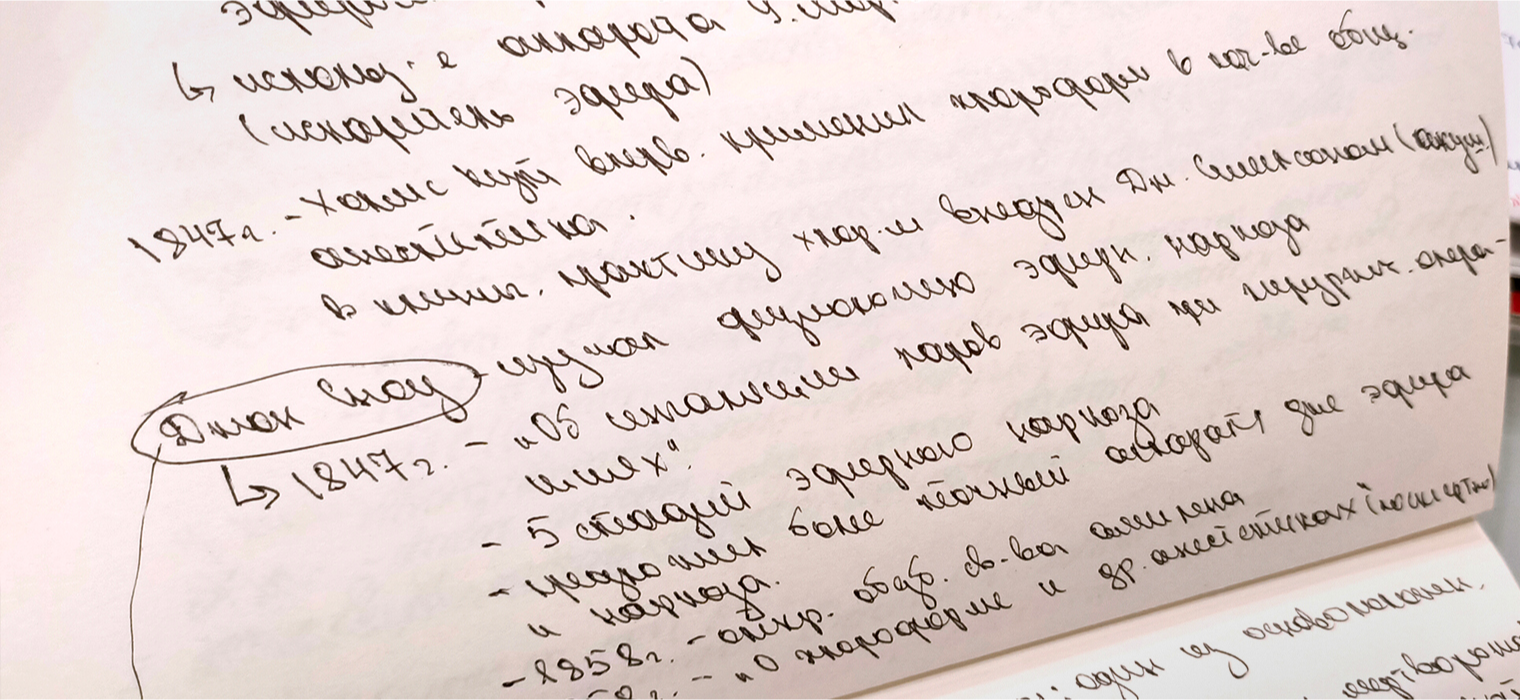 ↳ использ-е аппарата У. Мор
(испаритель эфира)
1847г. - Холмс Кут впервые. применил хлороформ в кач-ве общ.
анестетика.
в клинич. практику хлор-м внедрен Дж. Симпсоном (акуш.)
Джон Сноу - изучал физиологию эфирн. наркоза
↳ 1847г. - "Об ингаляции паров эфира при хирургич. опера-
циях".
- 5 стадий эфирного наркоза
- предложил более точный аппарат для эфира
и наркоза.
- 1858г. - откр. обезб. св-ва амилена
58г. - "О хлороформе и др. анестетиках" (посмертно)
один из основоположн.